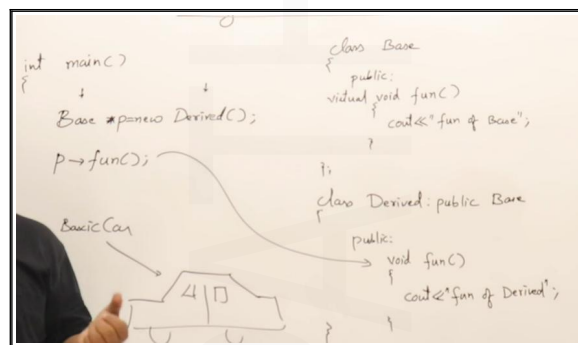 int main()
{
Base *p=new Derived();
p→fun();
Basic Car
class Base
{
public:
virtual void fun()
{
cout<<"fun of Base";
}
};
class Derived: public Base
{
public:
void fun()
{
cout<<"fun of Derived";
}
}